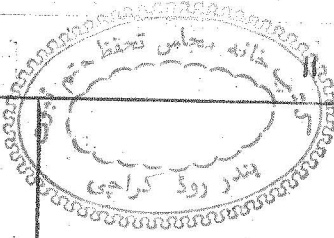 کتب خانہ مجلس تحفظ ختم نبوت
بندر روڈ کراچی
11